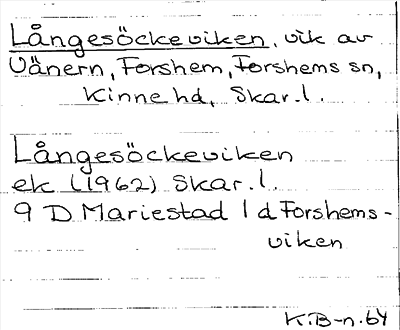 Långesöckeviken, vik av
Vänern, Forshem, Forshems sn,
Kinne hd, Skar. l.
Långesöckeviken
ek (1962) Skar. l.
9 D Mariestad 1 d Forshems-
viken
K.B-n. 64